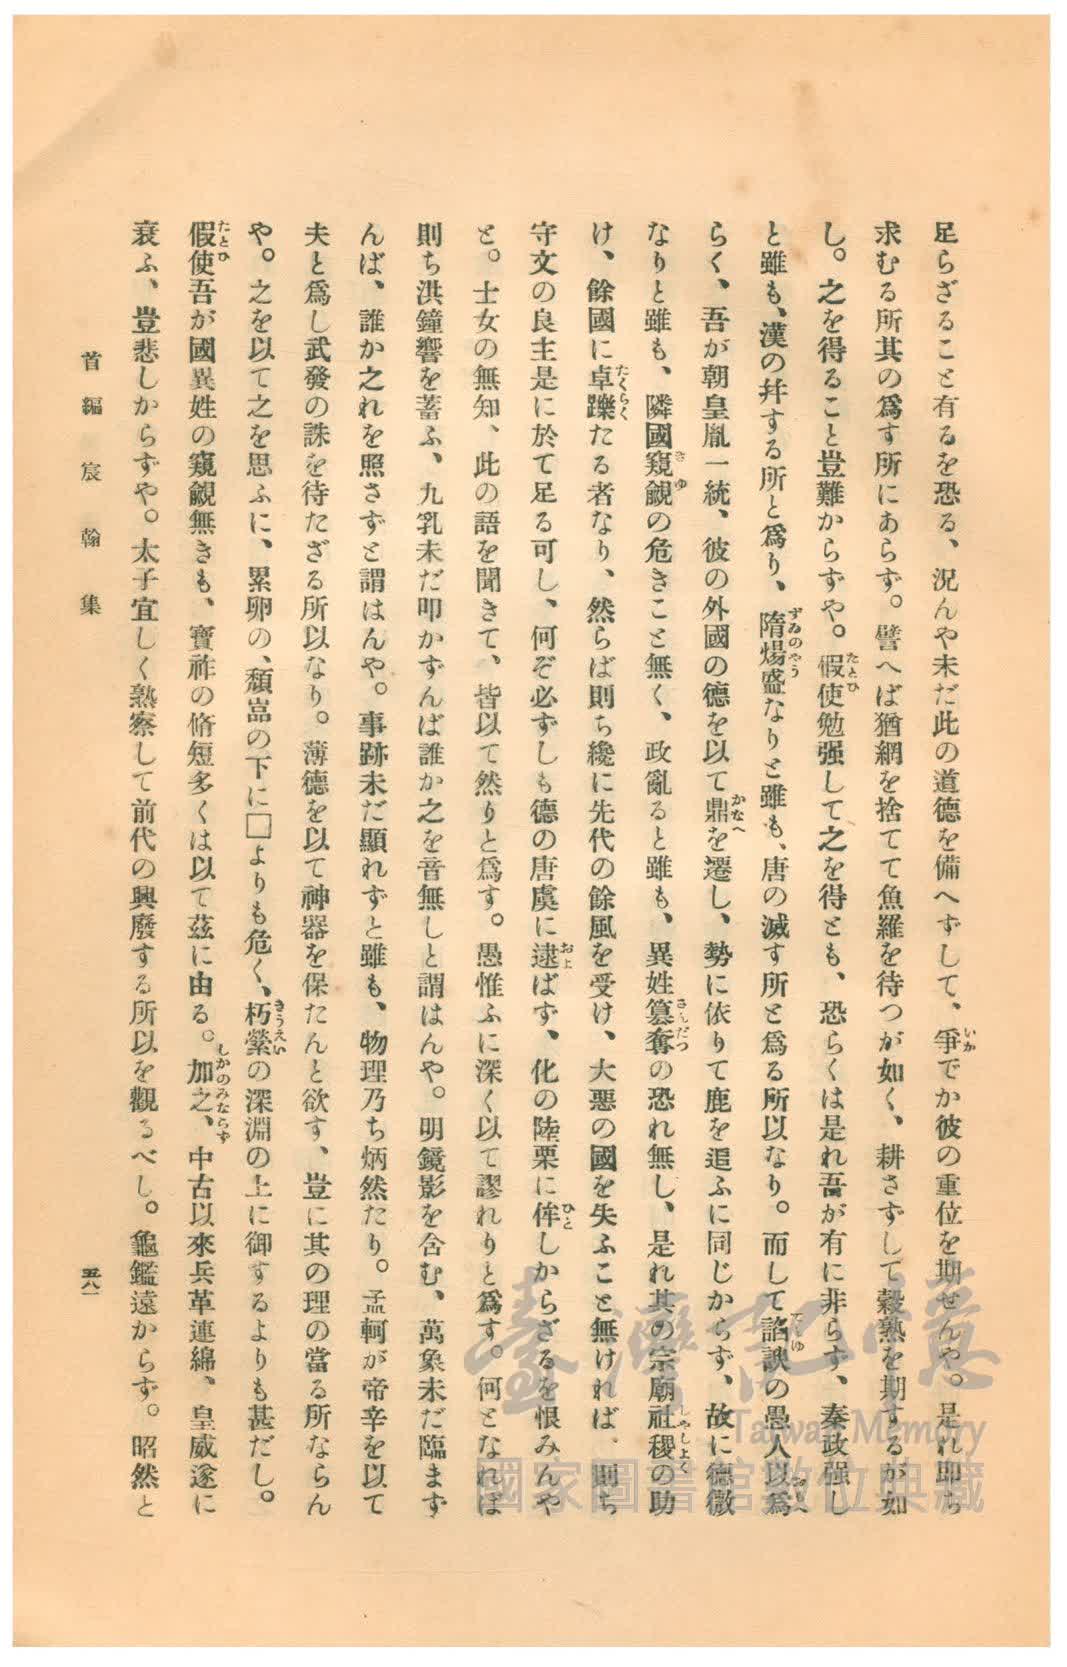 足らざること有るを恐る、況んや未だ此の道德を備へずして、爭でか彼の重位を期せんや。是れ卽ち
求むる所其の爲す所にあらず。譬へば猶網を捨てて魚羅を待つが如く、耕さずして穀熟を期するが如
し。之を得ること豈難からずや。假使勉强して之を得とも、恐らくは是れ吾が有に非らず、秦政强し
と雖も、漢の幷する所と爲り、隋煬盛なりと雖も、唐の滅す所と爲る所以なり。而して諂諛の愚人以爲
らく、吾が朝皇胤一統、彼の外國の德を以て鼎を遷し、勢に依りて鹿を逐ふに同じからず、故に德微
なりと雖も、隣國窺覦の危きこと無く、政亂ると雖も、異姓簒奪の恐れ無し、是れ其の宗廟社稷の助
け、餘國に卓躒たる者なり、然らば則ち纔に先代の餘風を受け、大惡の國を失ふこと無ければ、則ち
守文の良主是に於て足る可し、何ぞ必ずしも德の唐虞に逮ばず、化の陸栗に侔しからざるを恨みんや
と。士女の無知、此の語を聞きて、皆以て然りと爲す。愚惟ふに深く以て謬れりと爲す。何となれば
則ち洪鐘響を蓄ふ、九乳未だ叩かずんば誰か之を音無しと謂はんや。明鏡影を含む、萬象未だ臨まず
んば、誰か之れを照さずと謂はんや。事跡未だ顯れずと雖も、物理乃ち炳然たり。孟軻が帝辛を以て
夫と爲し武發の誅を待たざる所以なり。薄德を以て神器を保たんと欲す、豈に其の理の當る所ならん
や。之を以て之を思ふに、累卵の、頹嵓の下に□よりも危く、朽縈の深淵の上に御するよりも甚だし。
假使吾が國異姓の窺覦無きも、寶祚の脩短多くは以て茲に由る。加之、中古以來兵革連綿、皇威遂に
衰ふ、豈悲しからずや。太子宜しく熟察して前代の興廢する所以を觀るべし。龜鑑遠からず。昭然と
首編宸翰集
五八一
いか
たとひ
ずゐのやう
てんゆ
おもへ
かなへ
き ゆ
さんだつ
しやしよく
たくらく
およ
ひと
きうえい
たとひ
しかのみならず
臺灣記憶
Taiwan Memory
國家圖書館數位典藏